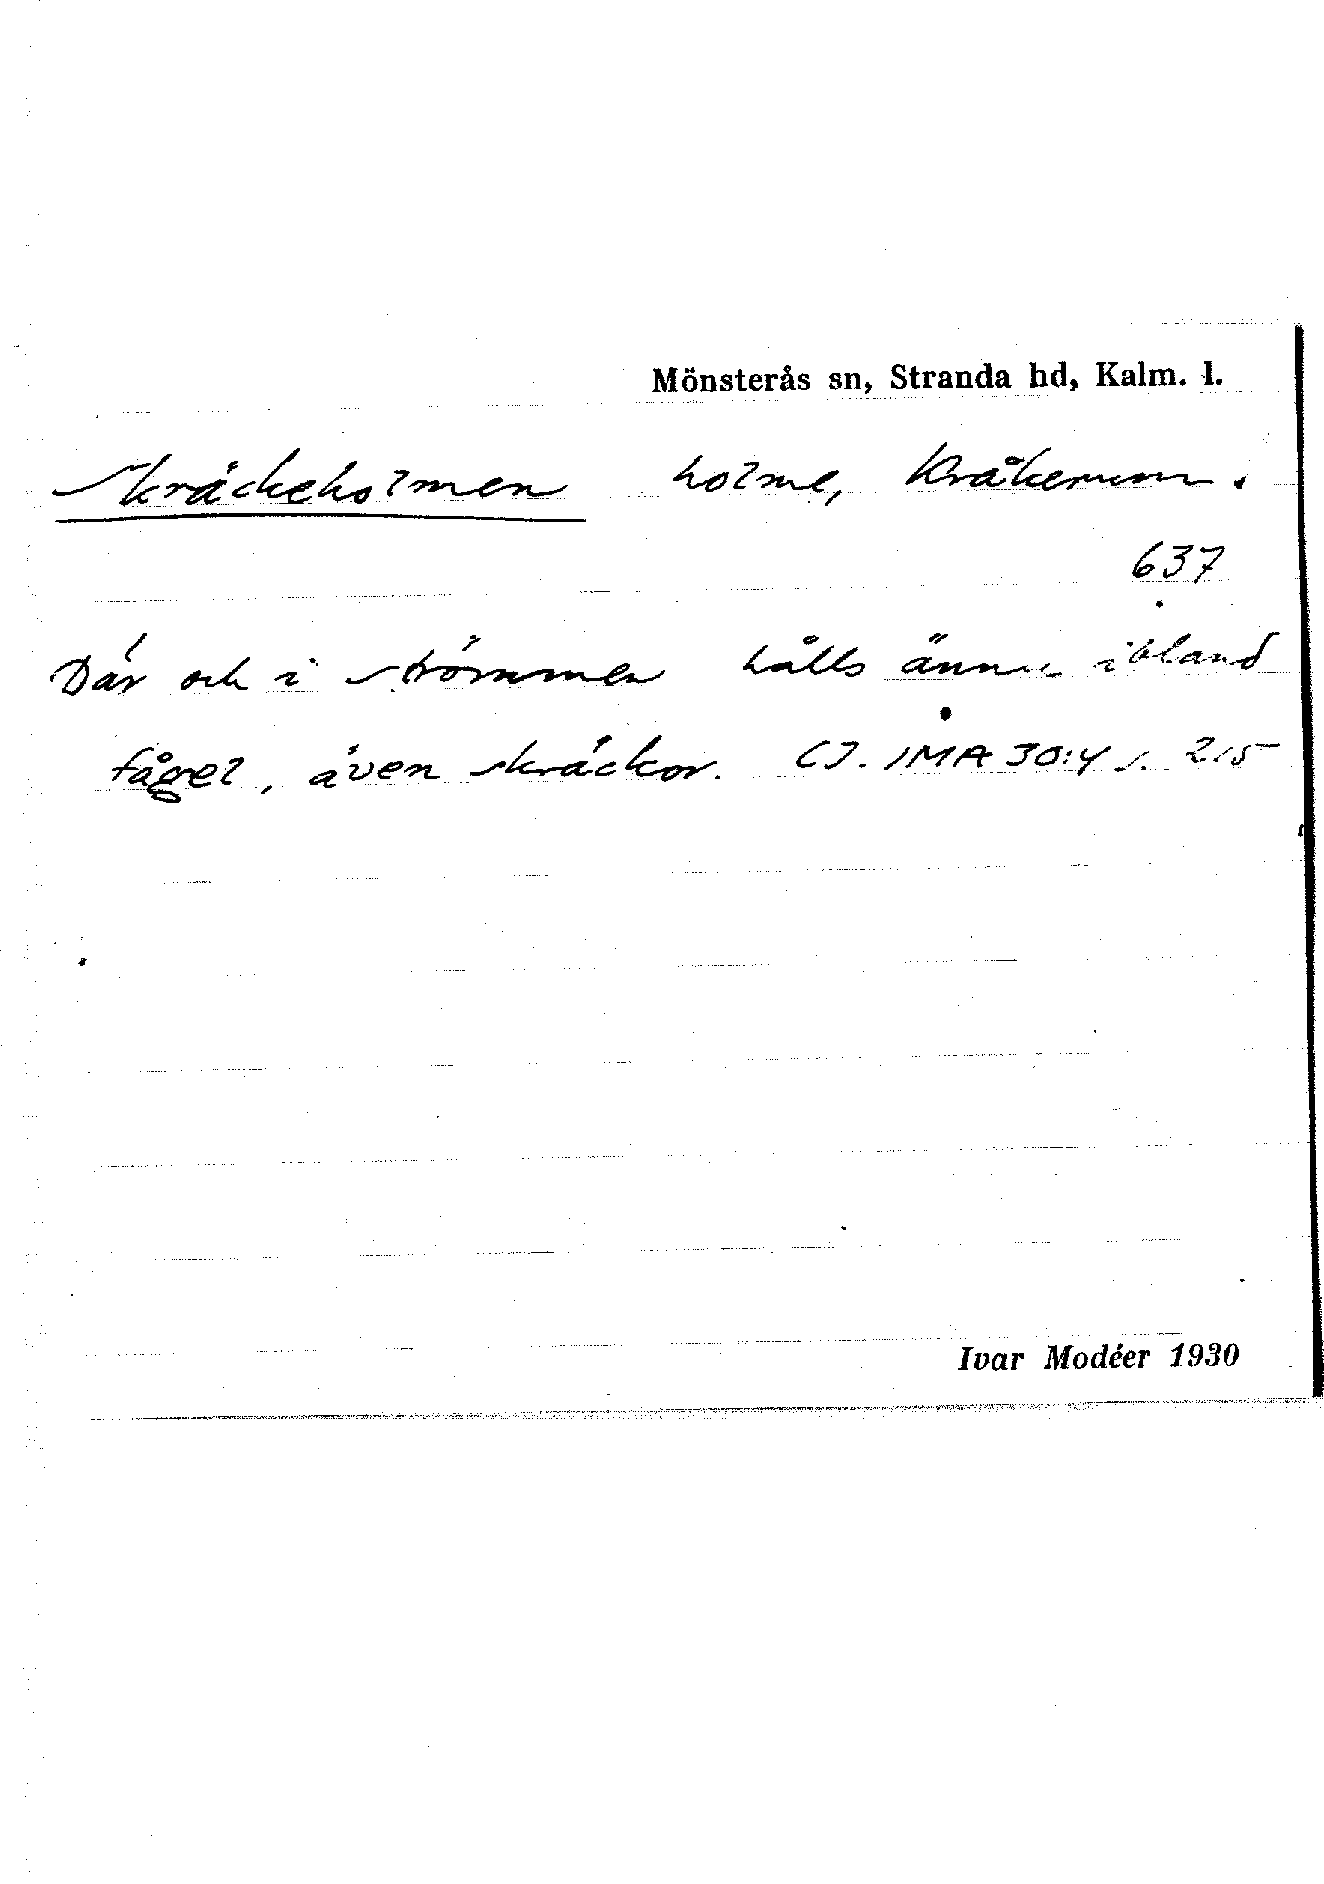 Mönsterås sn, Stranda hd, Kalm. l.
Skräckeholmen holme, Kråkerum.
637
Där och i strömmen hålls ännu ibland
fågel, även skräckor. CJ. IMA 30:4 s. 215
Ivar Modéer 1930